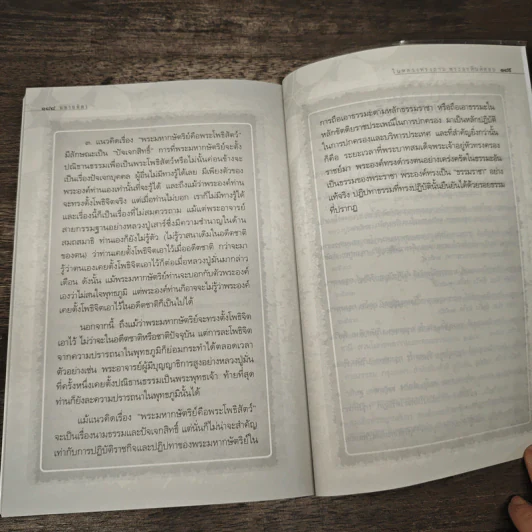 ๓. แนวคิดเรื่อง "พระมหากษัตริย์คือพระโพธิสัตว์"
มีลักษณะเป็น "ปัจเจกสิทธิ์" การที่พระมหากษัตริย์จะตั้ง
ปณิธานธรรมเพื่อเป็นพระโพธิสัตว์หรือไม่นั้นค่อนข้างจะ
เป็นเรื่องปัจเจกบุคคล ผู้อื่นไม่มีทางรู้ได้เลย มีเพียงตัวของ
พระองค์ท่านเองเท่านั้นที่จะรู้ได้ และถึงแม้ว่าพระองค์ท่าน
จะทรงตั้งโพธิจิตจริง แต่เมื่อท่านไม่บอก เราก็ไม่มีทางรู้ได้
และเรื่องนี้ก็เป็นเรื่องที่ไม่สมควรถาม แม้แต่พระอาจารย์
สายกรรมฐานอย่างหลวงปู่เสาร์ซึ่งมีความชำนาญในด้าน
สมถสมาธิ ท่านเองก็ยังไม่รู้ตัว (ไม่รู้วาสนาเดิมในอดีตชาติ
ของตน) ว่าท่านเคยตั้งโพธิจิตเอาไว้เมื่ออดีตชาติ กว่าจะมา
รู้ว่าตนเองเคยตั้งโพธิจิตเอาไว้ก็ต่อเมื่อหลวงปู่มั่นมากล่าว
เตือน ดังนั้น แม้พระมหากษัตริย์ท่านจะบอกกับตัวพระองค์
เองว่าไม่สนใจพุทธภูมิ แต่พระองค์ท่านก็อาจจะไม่รู้ว่าพระองค์
เคยตั้งโพธิจิตเอาไว้ในอดีตชาติก็เป็นไปได้
นอกจากนี้ ถึงแม้ว่าพระมหากษัตริย์จะทรงตั้งโพธิจิต
เอาไว้ ไม่ว่าจะในอดีตชาติหรือชาติปัจจุบัน แต่การละโพธิจิต
จากความปรารถนาในพุทธภูมิก็ย่อมกระทำได้ตลอดเวลา
ตัวอย่างเช่น พระอาจารย์ผู้มีบุญญาธิการสูงอย่างหลวงปู่มั่น
ที่ครั้งหนึ่งเคยตั้งปณิธานธรรมเป็นพระพุทธเจ้า ท้ายที่สุด
ท่านก็ยังละความปรารถนาในพุทธภูมินั้นได้
แม้แนวคิดเรื่อง "พระมหากษัตริย์คือพระโพธิสัตว์"
จะเป็นเรื่องนามธรรมและปัจเจกสิทธิ์ แต่นั่นก็ไม่น่าจะสำคัญ
เท่ากับการปฏิบัติราชกิจและปฏิปทาของพระมหากษัตริย์ใน
การถือเอาธรรมะตามหลักธรรมราชา หรือถือเอาธรรมะใน
หลักขัตติยราชประเพณีในการปกครอง มาเป็นหลักปฏิบัติ
ในการปกครองและบริหารประเทศ และที่สำคัญยิ่งกว่านั้น
ก็คือ ระยะเวลาที่พระบาทสมเด็จพระเจ้าอยู่หัวทรงครอง
ราชย์มา พระองค์ทรงดำรงตนอย่างเคร่งครัดในธรรมะอัน
เป็นธรรมของพระราชา พระองค์ทรงเป็น "ธรรมราชา" อย่าง
แท้จริง ปฏิปทาธรรมที่ทรงปฏิบัตินั้นยืนยันได้ด้วยรอยธรรม
ที่ปรากฏ